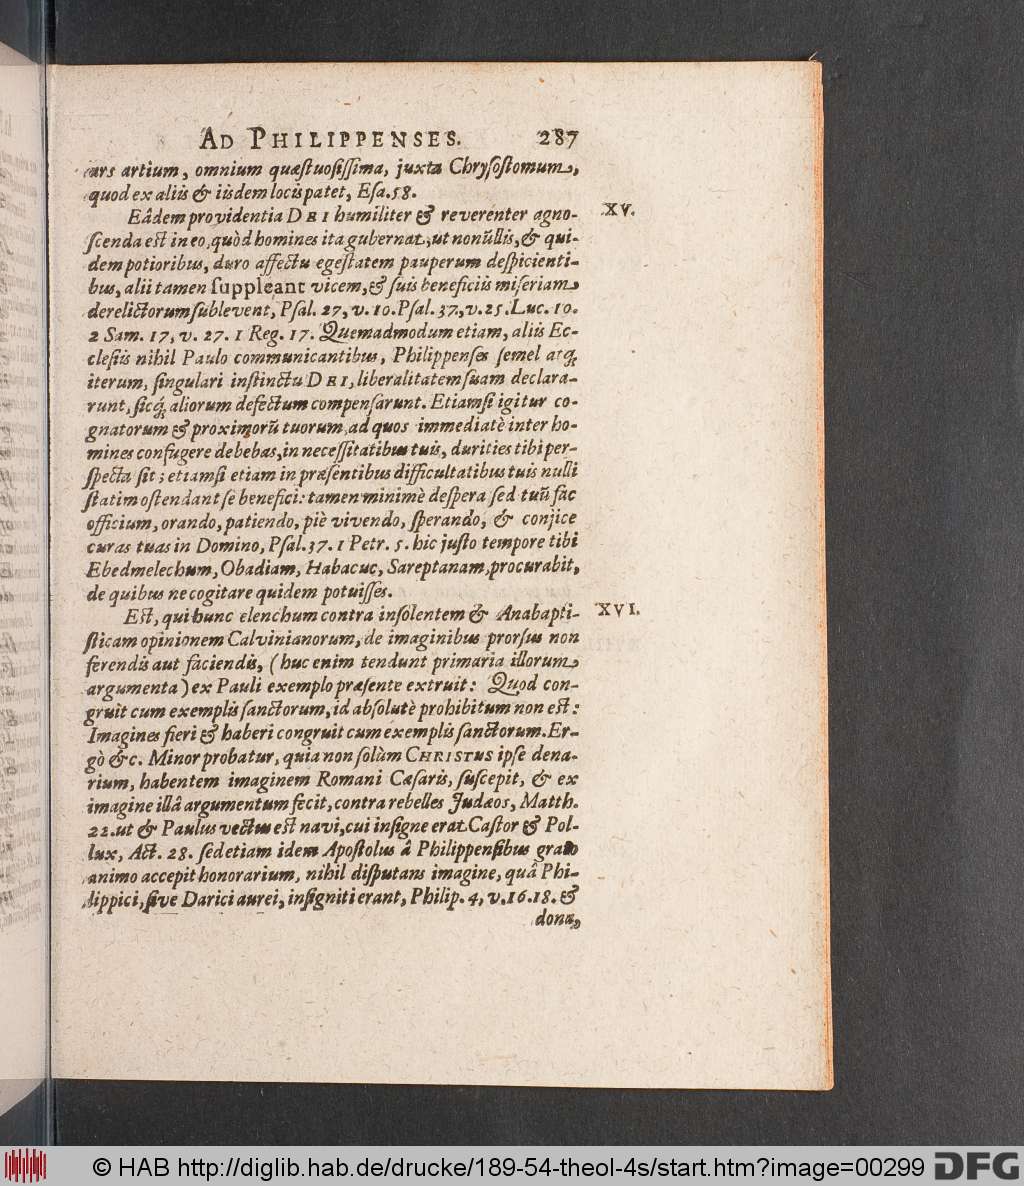 AD PHILIPPENSES. 287
ars artium, omnium quæstuosissima, juxta Chrysostomum,
quod ex aliis & iisdem locis patet, Esa. 58.
Eâdem providentia DEI humiliter & reverenter agno- XV.
scenda est in eo, quòd homines ita gubernat, ut nonũllis, & qui-
dem potioribus, duro affectu egestatem pauperum despicienti-
bus, alii tamen suppleant vicem, & suis beneficiis miseriam
derelictorum sublevent, Psal. 27, v. 10. Psal. 37, v. 25. Luc. 10.
2 Sam. 17, v. 27. 1 Reg. 17. Quemadmodum etiam, aliis Ec-
clesiis nihil Paulo communicantibus, Philippenses semel atq́;
iterum, singulari instinctu DEI, liberalitatem suam declara-
runt, sicq́; aliorum defectum compensarunt. Etiamsi igitur co-
gnatorum & proximorũ tuorum, ad quos immediatè inter ho-
mines confugere debebas, in necessitatibus tuis, durities tibi per-
specta sit; etiamsi etiam in præsentibus difficultatibus tuis nulli
statim ostendant se benefici: tamen minimè despera sed tuũ fac
officium, orando, patiendo, piè vivendo, sperando, & conjice
curas tuas in Domino, Psal. 37. 1 Petr. 5. hic justo tempore tibi
Ebedmelechum, Obadiam, Habacuc, Sareptanam, procurabit,
de quibus ne cogitare quidem potuisses.
Est, qui hunc elenchum contra insolentem & Anabapti- XVI.
sticam opinionem Calvinianorum, de imaginibus prorsus non
ferendis aut faciendis, (huc enim tendunt primaria illorum
argumenta) ex Pauli exemplo præsente extruit: Quod con-
gruit cum exemplis sanctorum, id absolutè prohibitum non est:
Imagines fieri & haberi congruit cum exemplis sanctorum. Er-
gò &c. Minor probatur, quia non solùm CHRISTUS ipse dena-
rium, habentem imaginem Romani Cæsaris, suscepit, & ex
imagine illâ argumentum fecit, contra rebelles Judæos, Matth.
22. ut & Paulus vectus est navi, cui insigne erat Castor & Pol-
lux, Act. 28. sed etiam idem Apostolus â Philippensibus grato
animo accepit honorarium, nihil disputans imagine, quâ Phi-
lippici, sive Darici aurei, insigniti erant, Philip. 4, v. 16. 18. &
dona,
© HAB http://diglib.hab.de/drucke/189-54-theol-4s/start.htm?image=00299 DFG